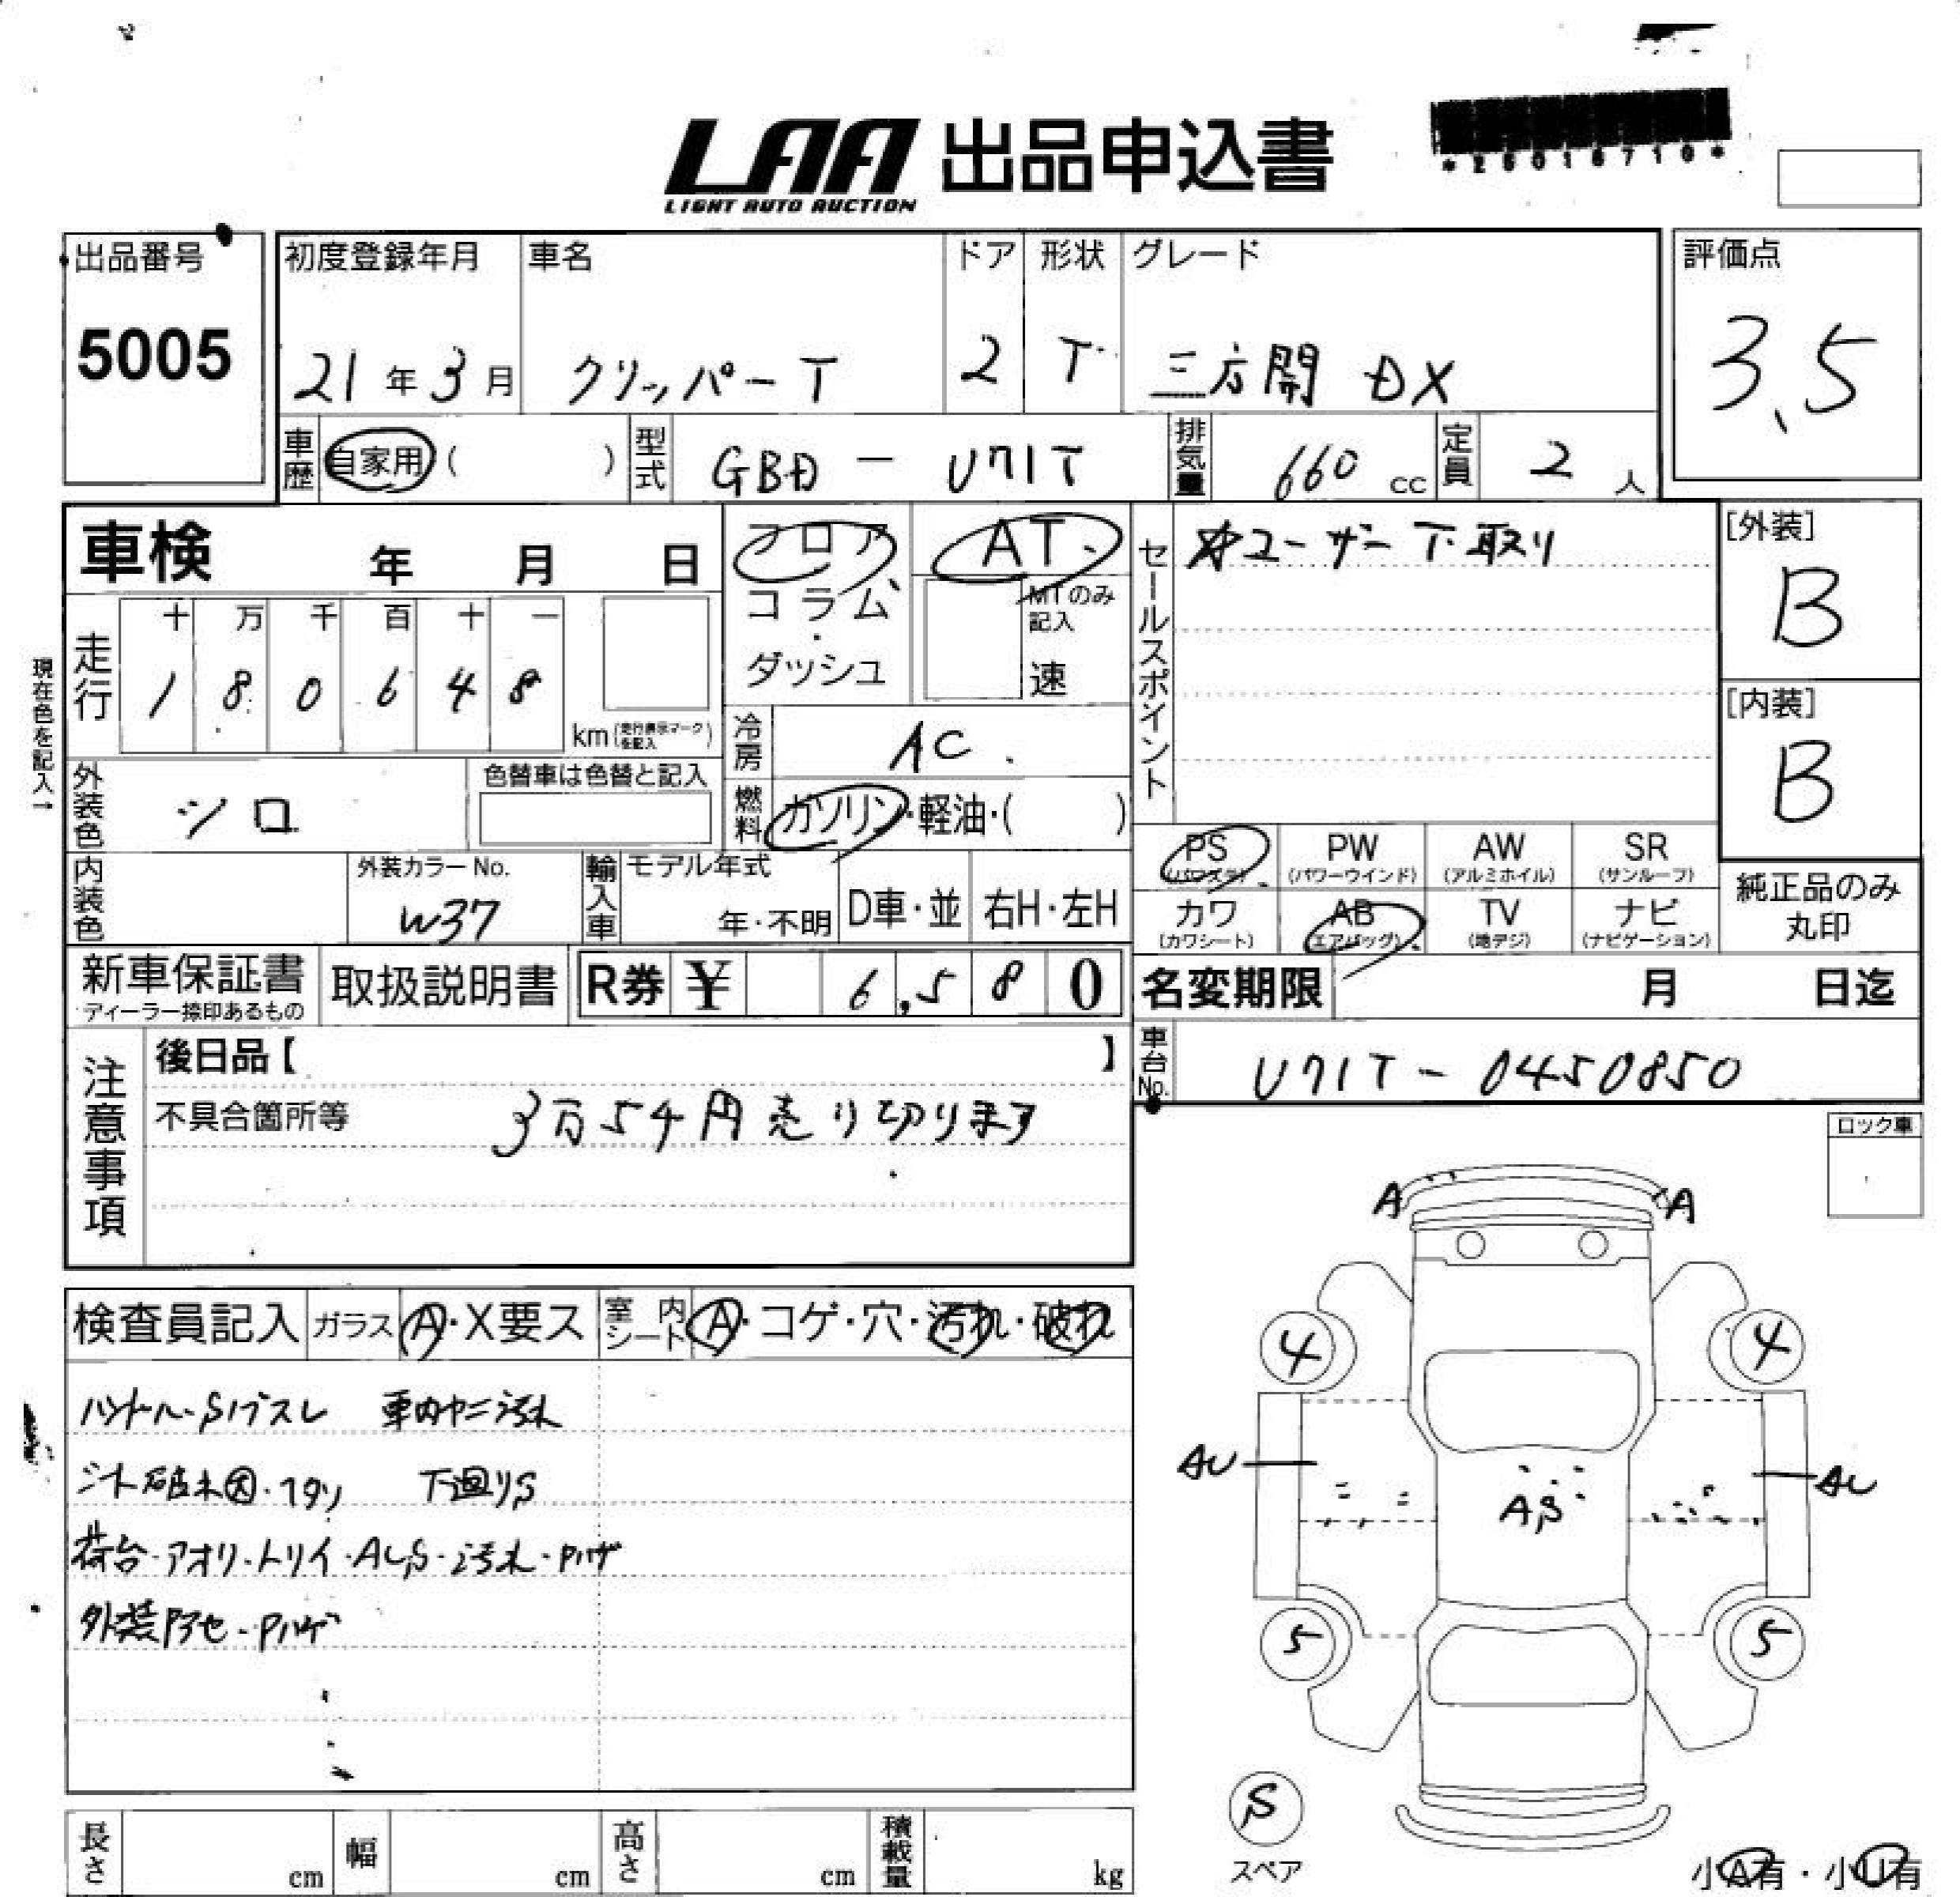 LAA 出品申込書
LIGHT AUTO AUCTION
出品番号
5005
初度登録年月
21年3月
車名
クリッパーT
ドア
2
形状
T
グレード
三方開 DX
評価点
3.5
車歴
自家用( )
型式
GBD - U71T
排気量
660 cc
定員
2 人
車検 年 月 日
フロア
コラム
・
ダッシュ
AT
MTのみ
記入
速
セールスポイント
☆ユーザー下取り
[外装]
B
[内装]
B
現在色を記入→
走行
十 万 千 百 十 一
1 8 0 6 4 8
km(走行表示マークを記入)
冷房
AC
燃料
ガソリン・軽油・( )
外装色
シロ
色替車は色替と記入
内装色
外装カラーNo.
W37
輸入車
モデル年式
年・不明
D車・並
右H・左H
PS
(パワステ)
PW
(パワーウインド)
AW
(アルミホイル)
SR
(サンルーフ)
カワ
(カワシート)
AB
(エアバッグ)
TV
(地デジ)
ナビ
(ナビゲーション)
純正品のみ
丸印
新車保証書
ディーラー捺印あるもの
取扱説明書
R券 ¥ 6,580
名変期限 月 日迄
注意事項
後日品【 】
不具合箇所等 3万5千円売り切ります
車台No.
U71T-0450850
ロック車
検査員記入
ガラス
A・X要ス
室内シート
A・コゲ・穴・汚れ・破れ
ハンドル・Sノブスレ 車内ヤニ汚れ
シート破れ大・フタリ 下廻りS
荷台・アオリ・トリイ・AUS・汚れ・Pハゲ
外装アセ・Pハゲ
A
A
4
4
AU
AU
AS
5
5
S
スペア
小A有・小U有
長さ cm
幅 cm
高さ cm
積載量 kg